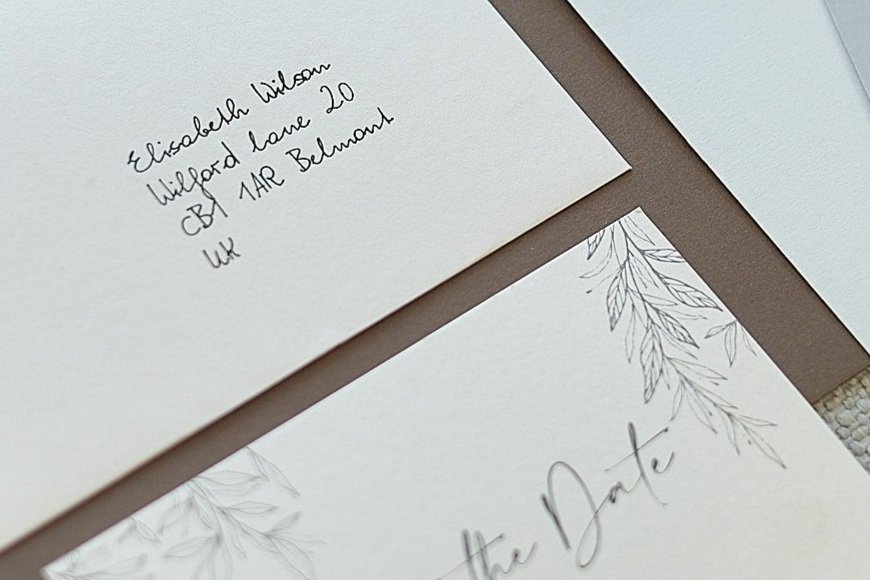 Elisabeth Wilson
Wilford Lane 20
CB1 1AR Belmont
UK
the Date